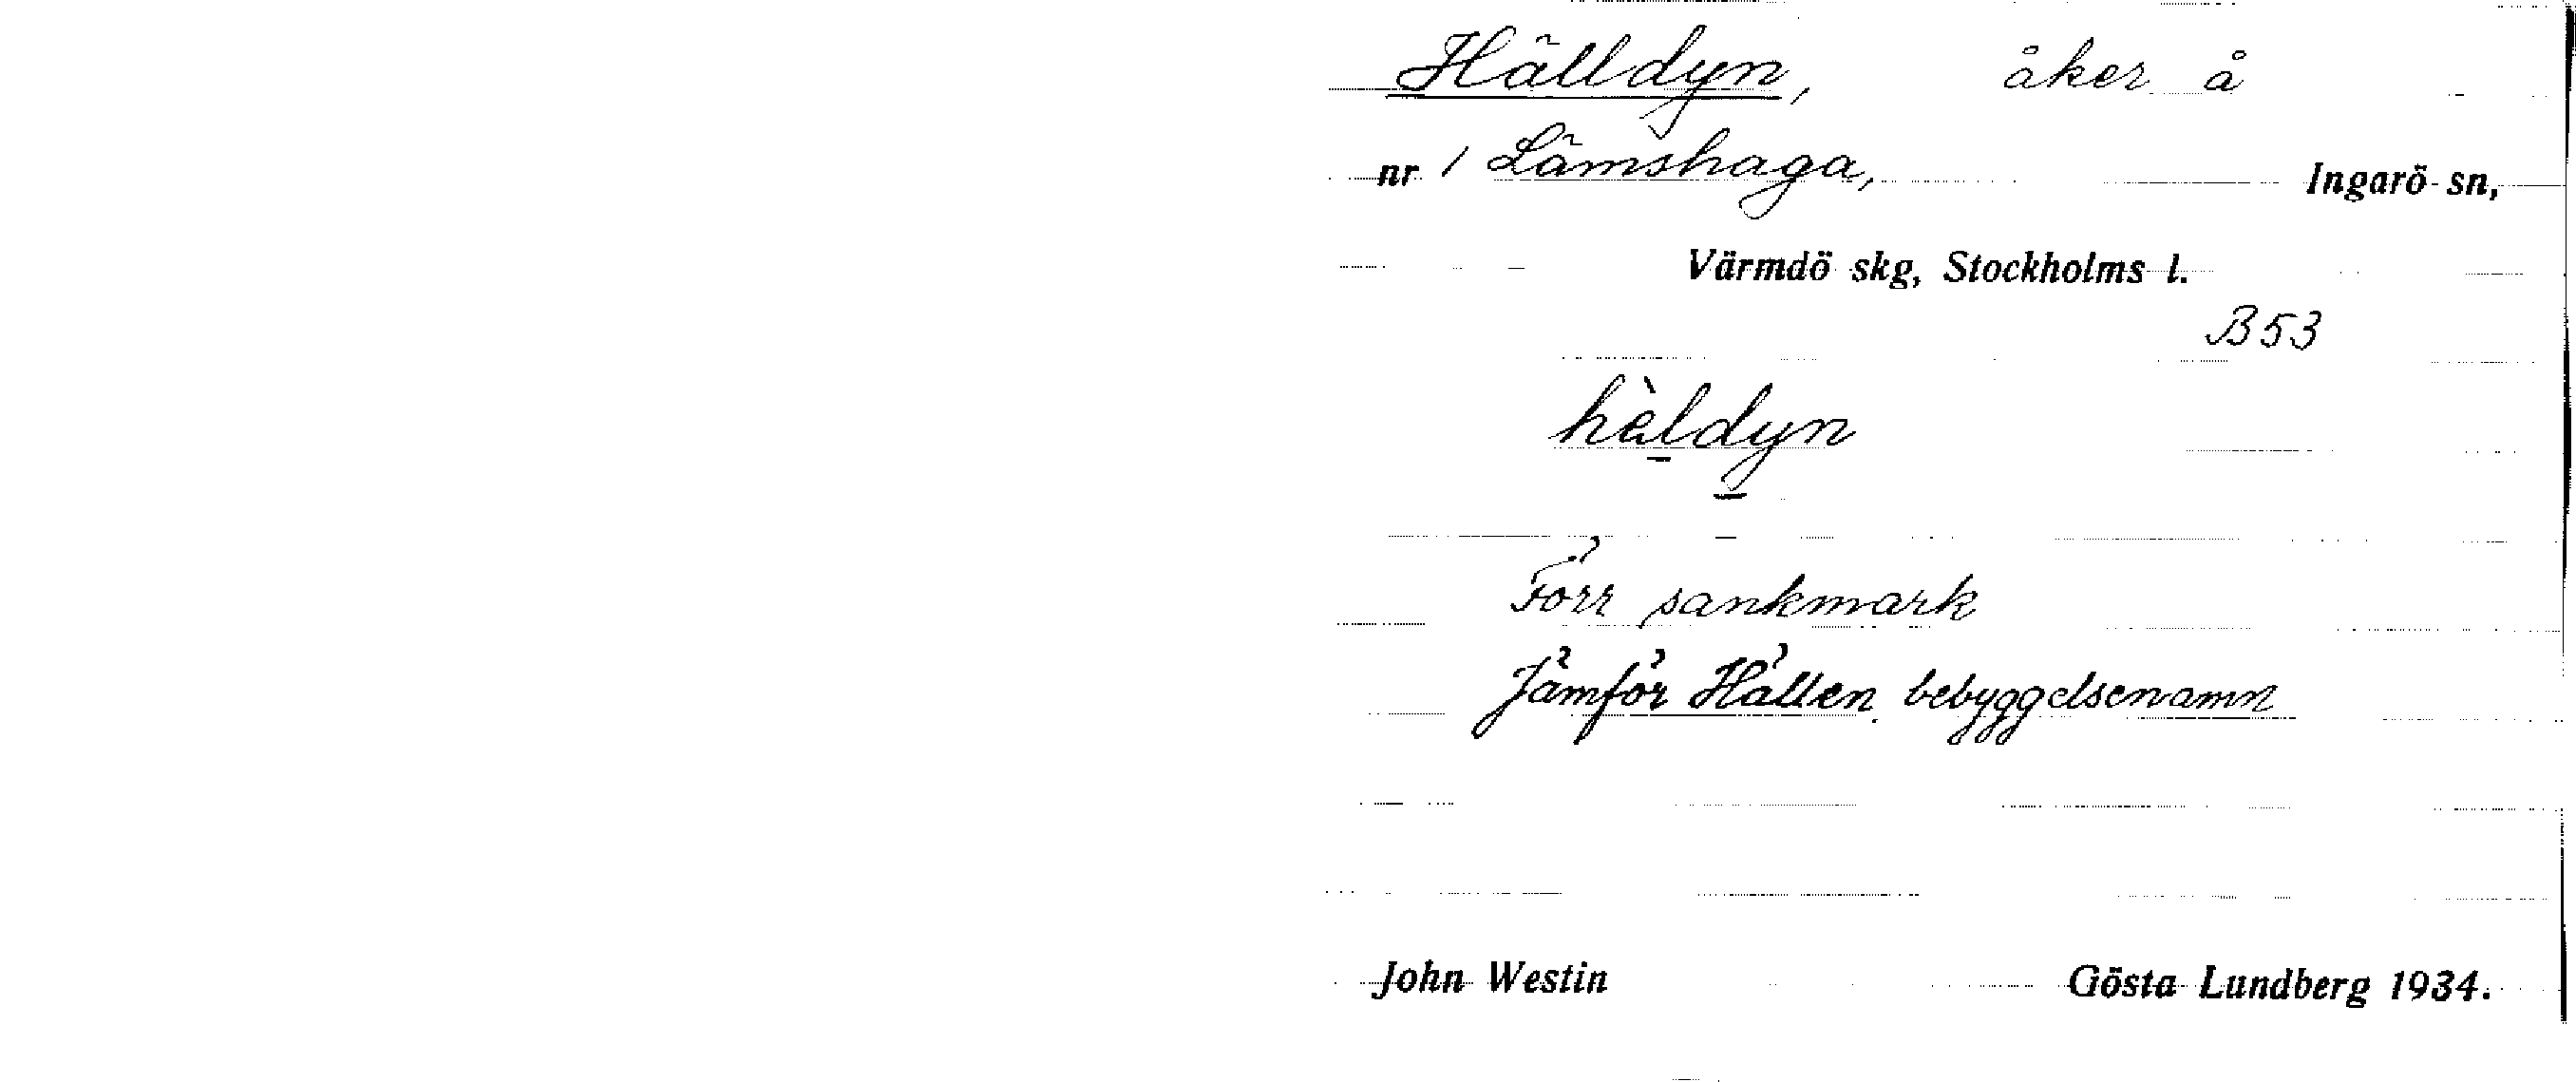 Hälldyn, åker å
nr 1 Lämshaga, Ingarö sn,
Värmdö skg, Stockholms l.
B53
hèldyn
Förr sankmark
Jämför Hällen bebyggelsenamn
John Westin Gösta Lundberg 1934.